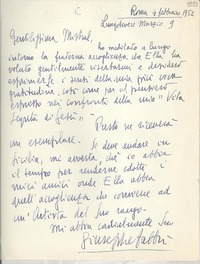 Roma 4 febbraio 1952
Lungotevere Marzio 9
Gentilissima Mistral,
ho meditato a lungo
intorno la fraterna accoglienza che Ella ha
voluto gentilmente riserbarmi e desidero
esprimerLe i sensi della mia più viva
gratitudine, così come per il pensiero
espresso nei confronti della mia "Vita
Segreta di Gesù".
Presto ne riceverà
un esemplare. Se deve andare in
Sicilia, mi avverta, ch'io abbia
il tempo per renderne edotti i
miei amici onde Ella abbia
quell'accoglienza che conviene ad
un'Artista del Suo rango.
Mi abbia cordialmente Suo
Giuseppe Fabbri